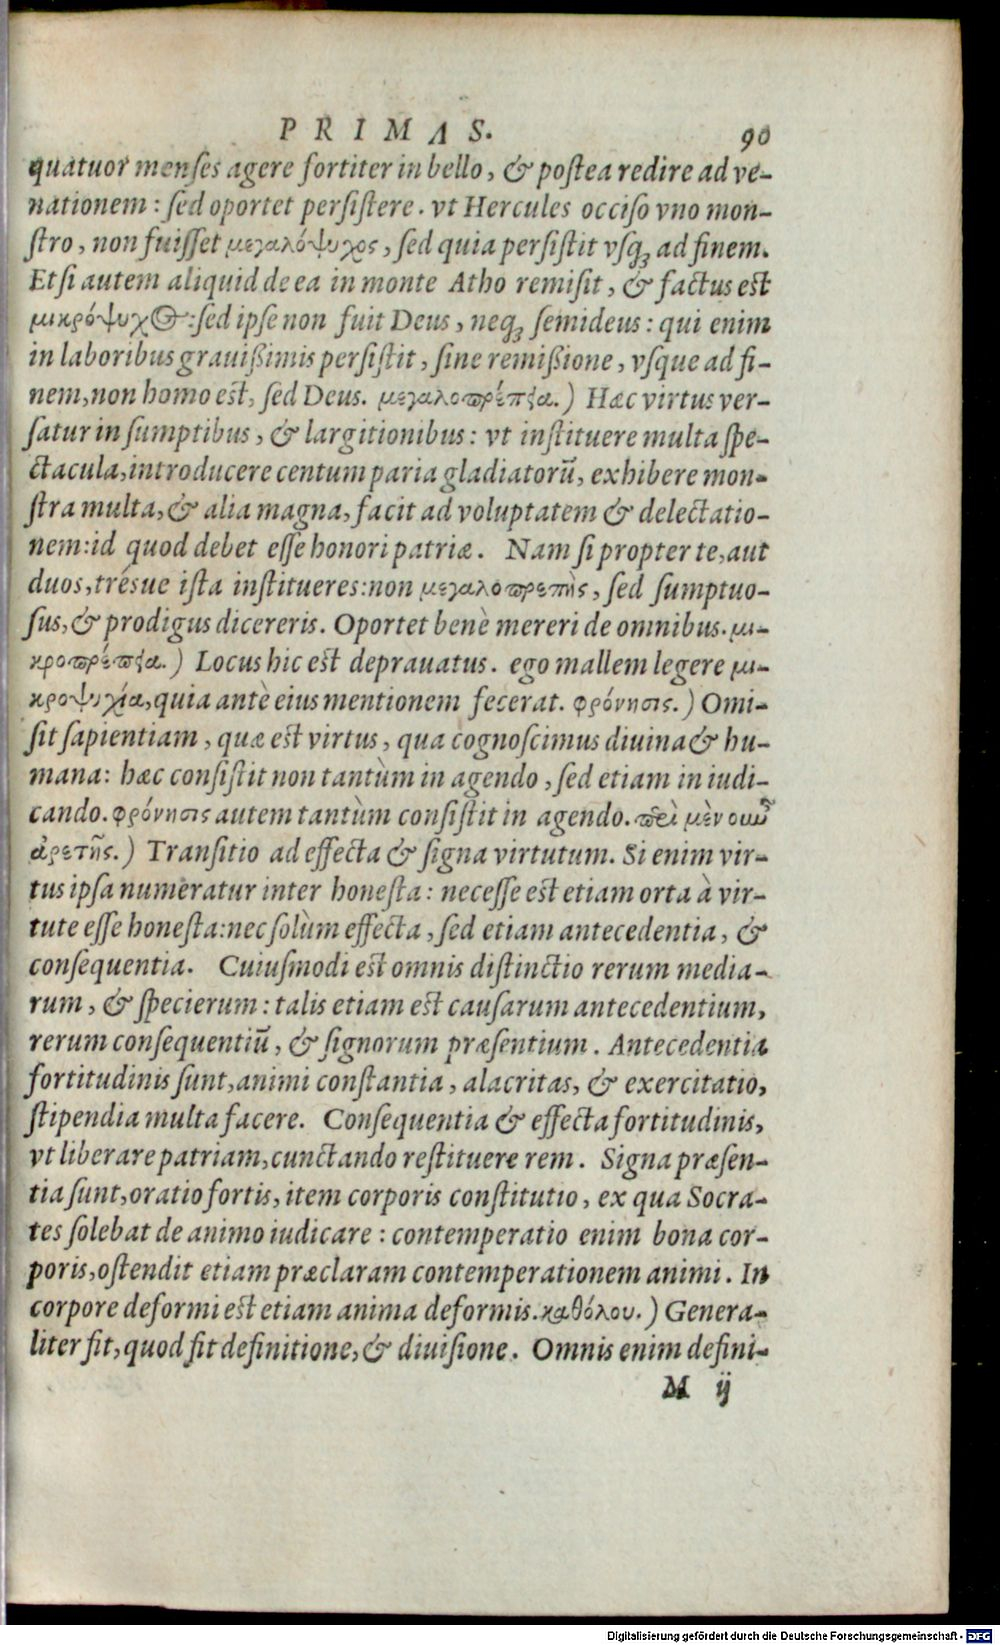 PRIMAS. 90
quatuor menses agere fortiter in bello, & postea redire ad ve-
nationem: sed oportet persistere. vt Hercules occiso vno mon-
stro, non fuisset μεγαλόψυχος, sed quia persistit vsq; ad finem.
Etsi autem aliquid de ea in monte Atho remisit, & factus est
μικρόψυχος: sed ipse non fuit Deus, neq; semideus: qui enim
in laboribus grauißimis persistit, sine remißione, vsque ad fi-
nem, non homo est, sed Deus. μεγαλοπρέπεια.) Hæc virtus ver-
satur in sumptibus, & largitionibus: vt instituere multa spe-
ctacula, introducere centum paria gladiatorū, exhibere mon-
stra multa, & alia magna, facit ad voluptatem & delectatio-
nem: id quod debet esse honori patriæ. Nam si propter te, aut
duos, trésue ista institueres: non μεγαλοπρεπὴς, sed sumptuo-
sus, & prodigus dicereris. Oportet benè mereri de omnibus. μι-
κροπρέπεια.) Locus hic est deprauatus. ego mallem legere μι-
κροψυχία, quia antè eius mentionem fecerat. φρόνησις.) Omi-
sit sapientiam, quæ est virtus, qua cognoscimus diuina & hu-
mana: hæc consistit non tantùm in agendo, sed etiam in iudi-
cando. φρόνησις autem tantùm consistit in agendo. περὶ μὲν οὖν
ἀρετῆς.) Transitio ad effecta & signa virtutum. Si enim vir-
tus ipsa numeratur inter honesta: necesse est etiam orta à vir-
tute esse honesta: nec solùm effecta, sed etiam antecedentia, &
consequentia. Cuiusmodi est omnis distinctio rerum media-
rum, & specierum: talis etiam est causarum antecedentium,
rerum consequentiū, & signorum præsentium. Antecedentia
fortitudinis sunt, animi constantia, alacritas, & exercitatio,
stipendia multa facere. Consequentia & effecta fortitudinis,
vt liberare patriam, cunctando restituere rem. Signa præsen-
tia sunt, oratio fortis, item corporis constitutio, ex qua Socra-
tes solebat de animo iudicare: contemperatio enim bona cor-
poris, ostendit etiam præclaram contemperationem animi. In
corpore deformi est etiam anima deformis. καθόλου.) Genera-
liter fit, quod fit definitione, & diuisione. Omnis enim defini-
M ij
Digitalisierung gefördert durch die Deutsche Forschungsgemeinschaft - DFG